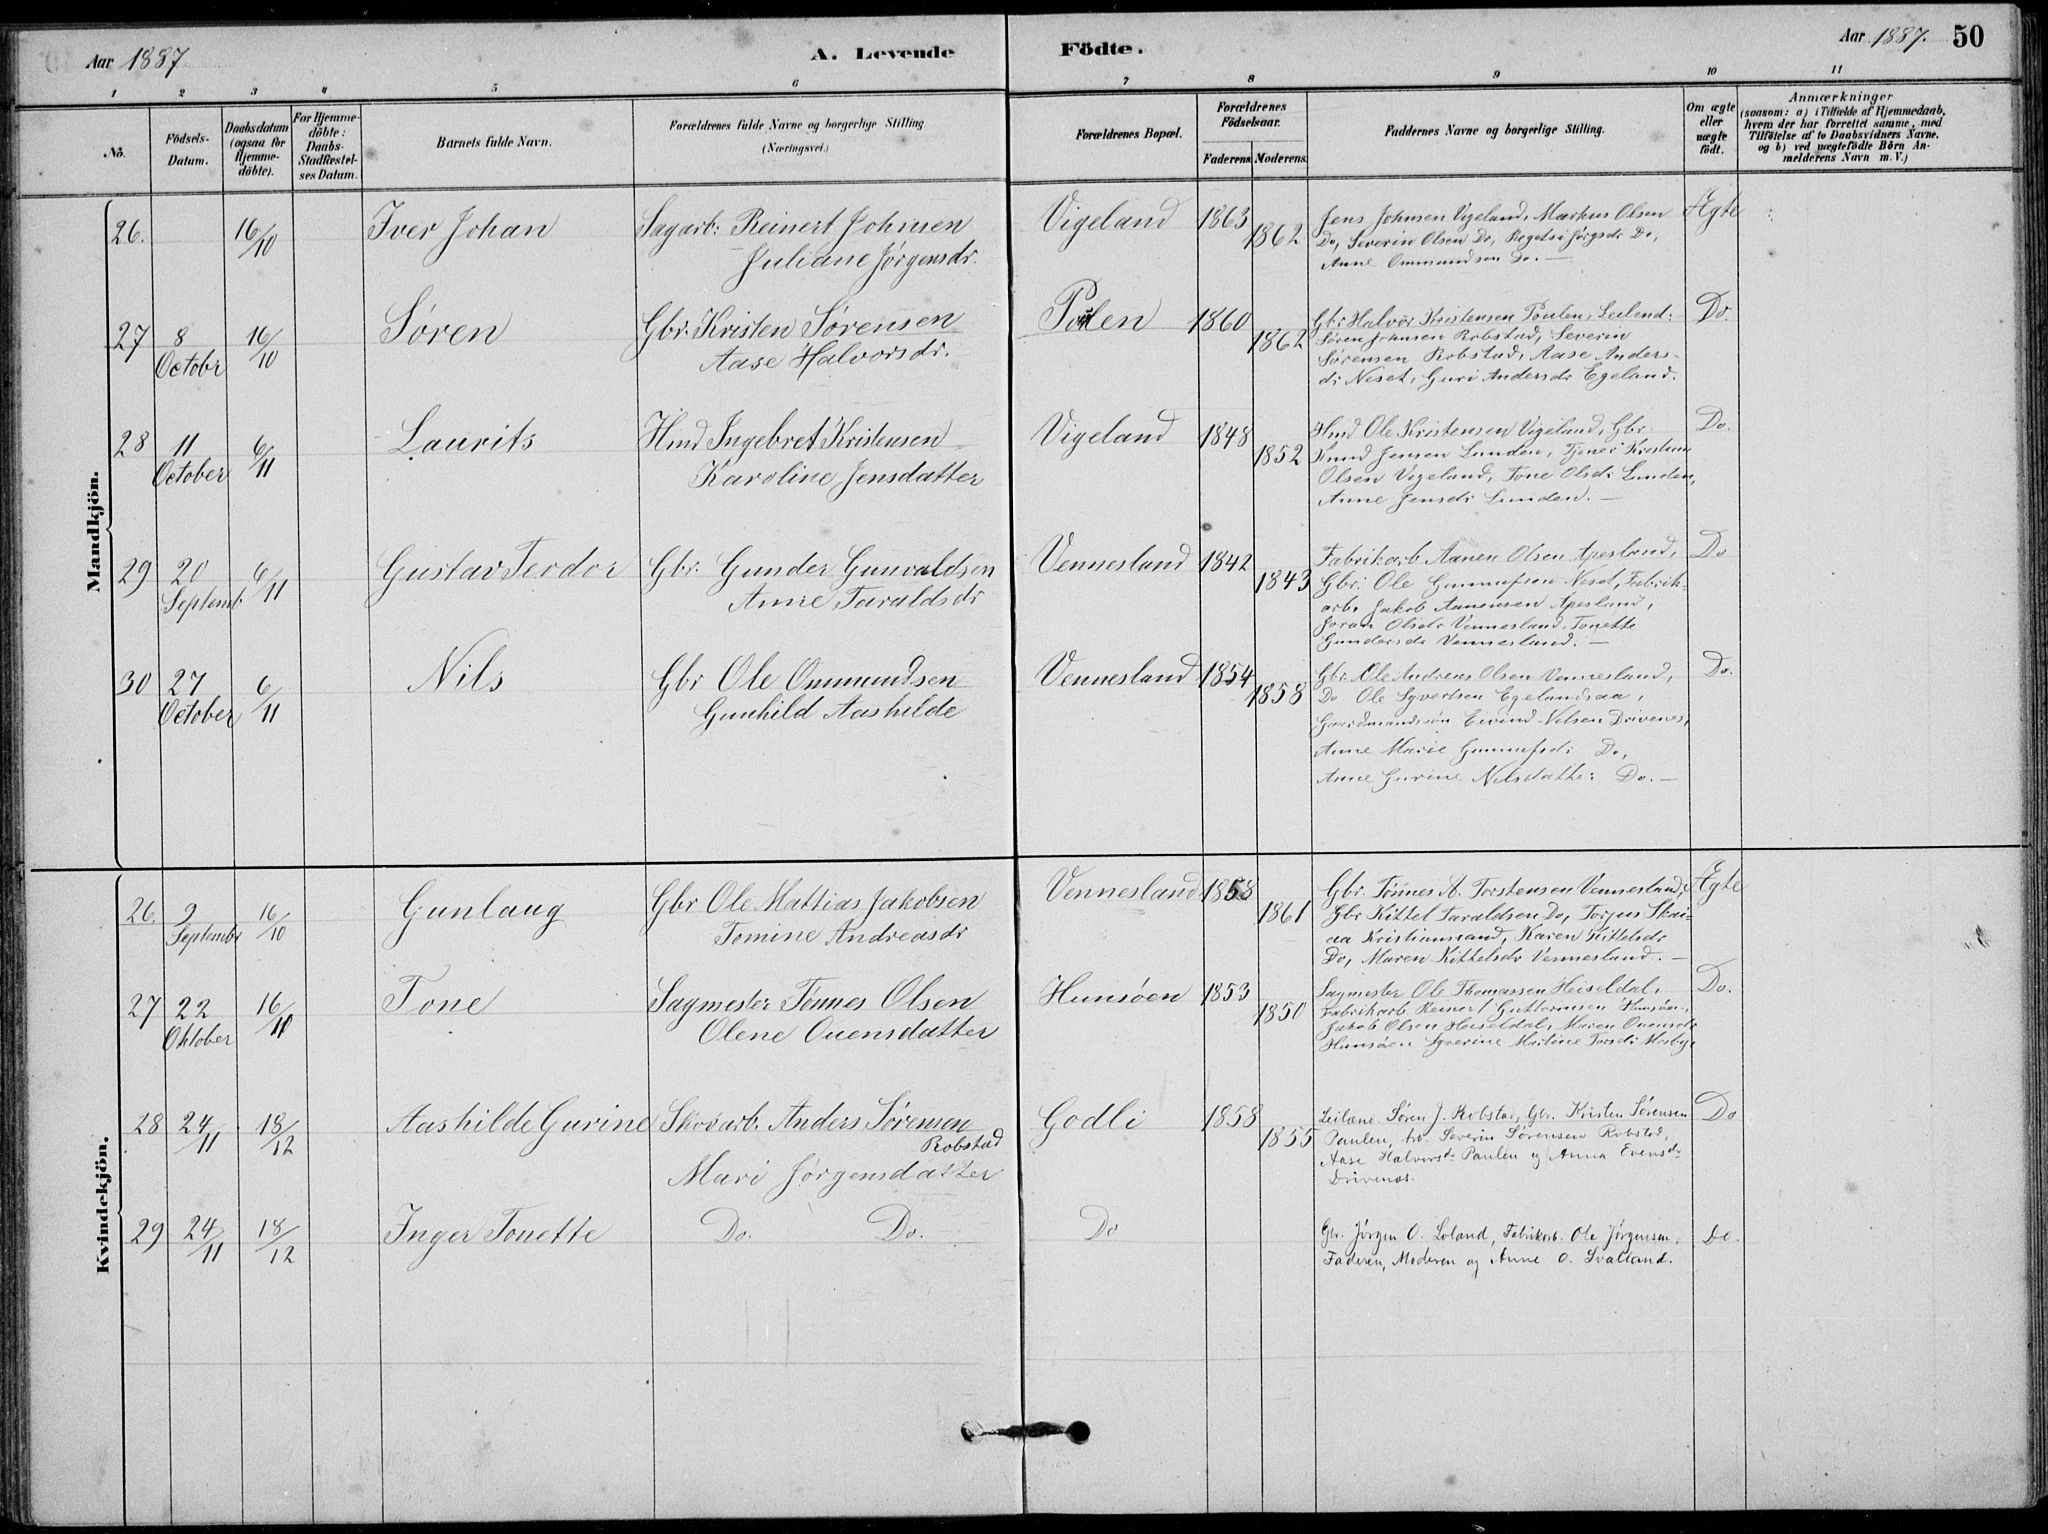 Aar 1887
A. Levende
Födte.
Aar 1887. 50
1 2 3 4 5 6 7 8 9 10 11
No.
Födsels-
Datum.
Daabsdatum
(ogsaa for
Hjemme-
döbte).
For Hjemme-
döbte:
Daabs-
Stadfestel-
ses Datum.
Barnets fulde Navn.
Forældrenes fulde Navne og borgerlige Stilling
(Næringsvei.)
Forældrenes Bopæl.
Forældrenes
Födselsaar.
Faderens. Moderens.
Faddernes Navne og borgerlige Stilling.
Om ægte
eller
uægte
födt.
Anmærkninger
(saasom: a) i Tilfælde af Hjemmedaab,
hvem der har forrettet samme, med
Tilföielse af to Daabsvidners Navne.
og b) ved uægtefödte Börn An-
melderens Navn m. V.)
Mandkjön.
26. 16/10 Iver Johan Sagarb: Reinert Johnsen
Juliane Jørgensdr.
Vigeland 1863 1862
Jens Johnsen Vigeland, Markus Olsen
Do, Severin Olsen Do, Jørgsdr Do,
Anne Ommundsen Do. —
Ægte
27 8 Octobr 16/10 Søren Gbr. Kristen Sørensen
Aase Halvorsdr.
Pulen 1860 1862
Gbr. Halvor Kristensen Poulen, Leilend:
Søren Johnsen Robstad, Severin
Sørensen Robstad, Aase Anders-
dr Neset, Guri Andersdr Egeland.
Do.
28 11 October 6/11 Laurits Hmd Ingebret Kristensen
Karoline Jensdatter
Vigeland 1848 1852
Hmd Ole Kristensen Vigeland, Gbr.
Knud Jensen Lunden, Tjener Kristian
Olsen Vigeland, Tone Olsdr Lunden,
Anne Jensdr Lunden. —
Do.
29 20 Septemb. 6/11 Gustav Teodor Gbr: Gunder Gunvaldsen
Anne Taraldsdr
Vennesland 1842 1843
Fabrikarb Aanen Olsen Apesland,
Gbr: Ole Gunnufsen Neset, Fabrik-
arb. Jakob Aanensen Apesland,
Joran Olsdr Vennesland, Tonette
Gundersdr Vennesland. —
Do
30 27 October 6/11 Nils Gbr Ole Ommundsen
Gunhild Aashilde
Vennesland 1854 1858
Gbr. Ole Andreas Olsen Vennesland,
Do Ole Syvertsen Egelandsaa,
Gaardmandssøn Eivind Nilsen Drivenes,
Anne Marie Gunnufsdr Do,
Anne Gurine Nilsdatte: Do. —
Do.
Kvindekjön.
26. 9 Septembr 16/10 Gunlaug Gbr Ole Mattias Jakobsen
Tomine Andreasdr
Vennesland 1858 1861
Gbr. Tønnes A. Torstensen Vennesland,
Gbr Kittel Taraldsen Do, Torjus Skai-
aa Kristiansand, Karen Kittelsdr
Do, Maren Kittelsdr Vennesland. —
Ægte
27 22 Oktober 16/10 Tone Sagmester Tønnes Olsen
Olene Ouensdatter
Hunsøen 1853 1850
Sagmester Ole Thomassen Heiseldal,
Fabrikarb Reinert Guttormsen Hunsøen,
Jakob Olsen Heiseldal, Maren Ouensdr
Hunsøen Syverine Martine Torsdr Mosby
Do.
28 24/11 18/12 Aashilde Gurine Skovarb. Anders Sørensen
Robstad
Mari Jørgensdatter
Godli 1858 1855
Leilæn. Søren J. Robstad, Gbr. Kristen Sørensen
Paulen, Severin Sørensen Robstad,
Aase Halvorsdr Paulen og Anna Evensdr
Drivenes.
Do
29 24/11 18/12 Inger Tonette Do. Do.
Do
Gbr. Jørgen O. Loland, Fabrikarb. Ole Jørgensen,
Faderen, Moderen og Anne O. Svalland.
Do.